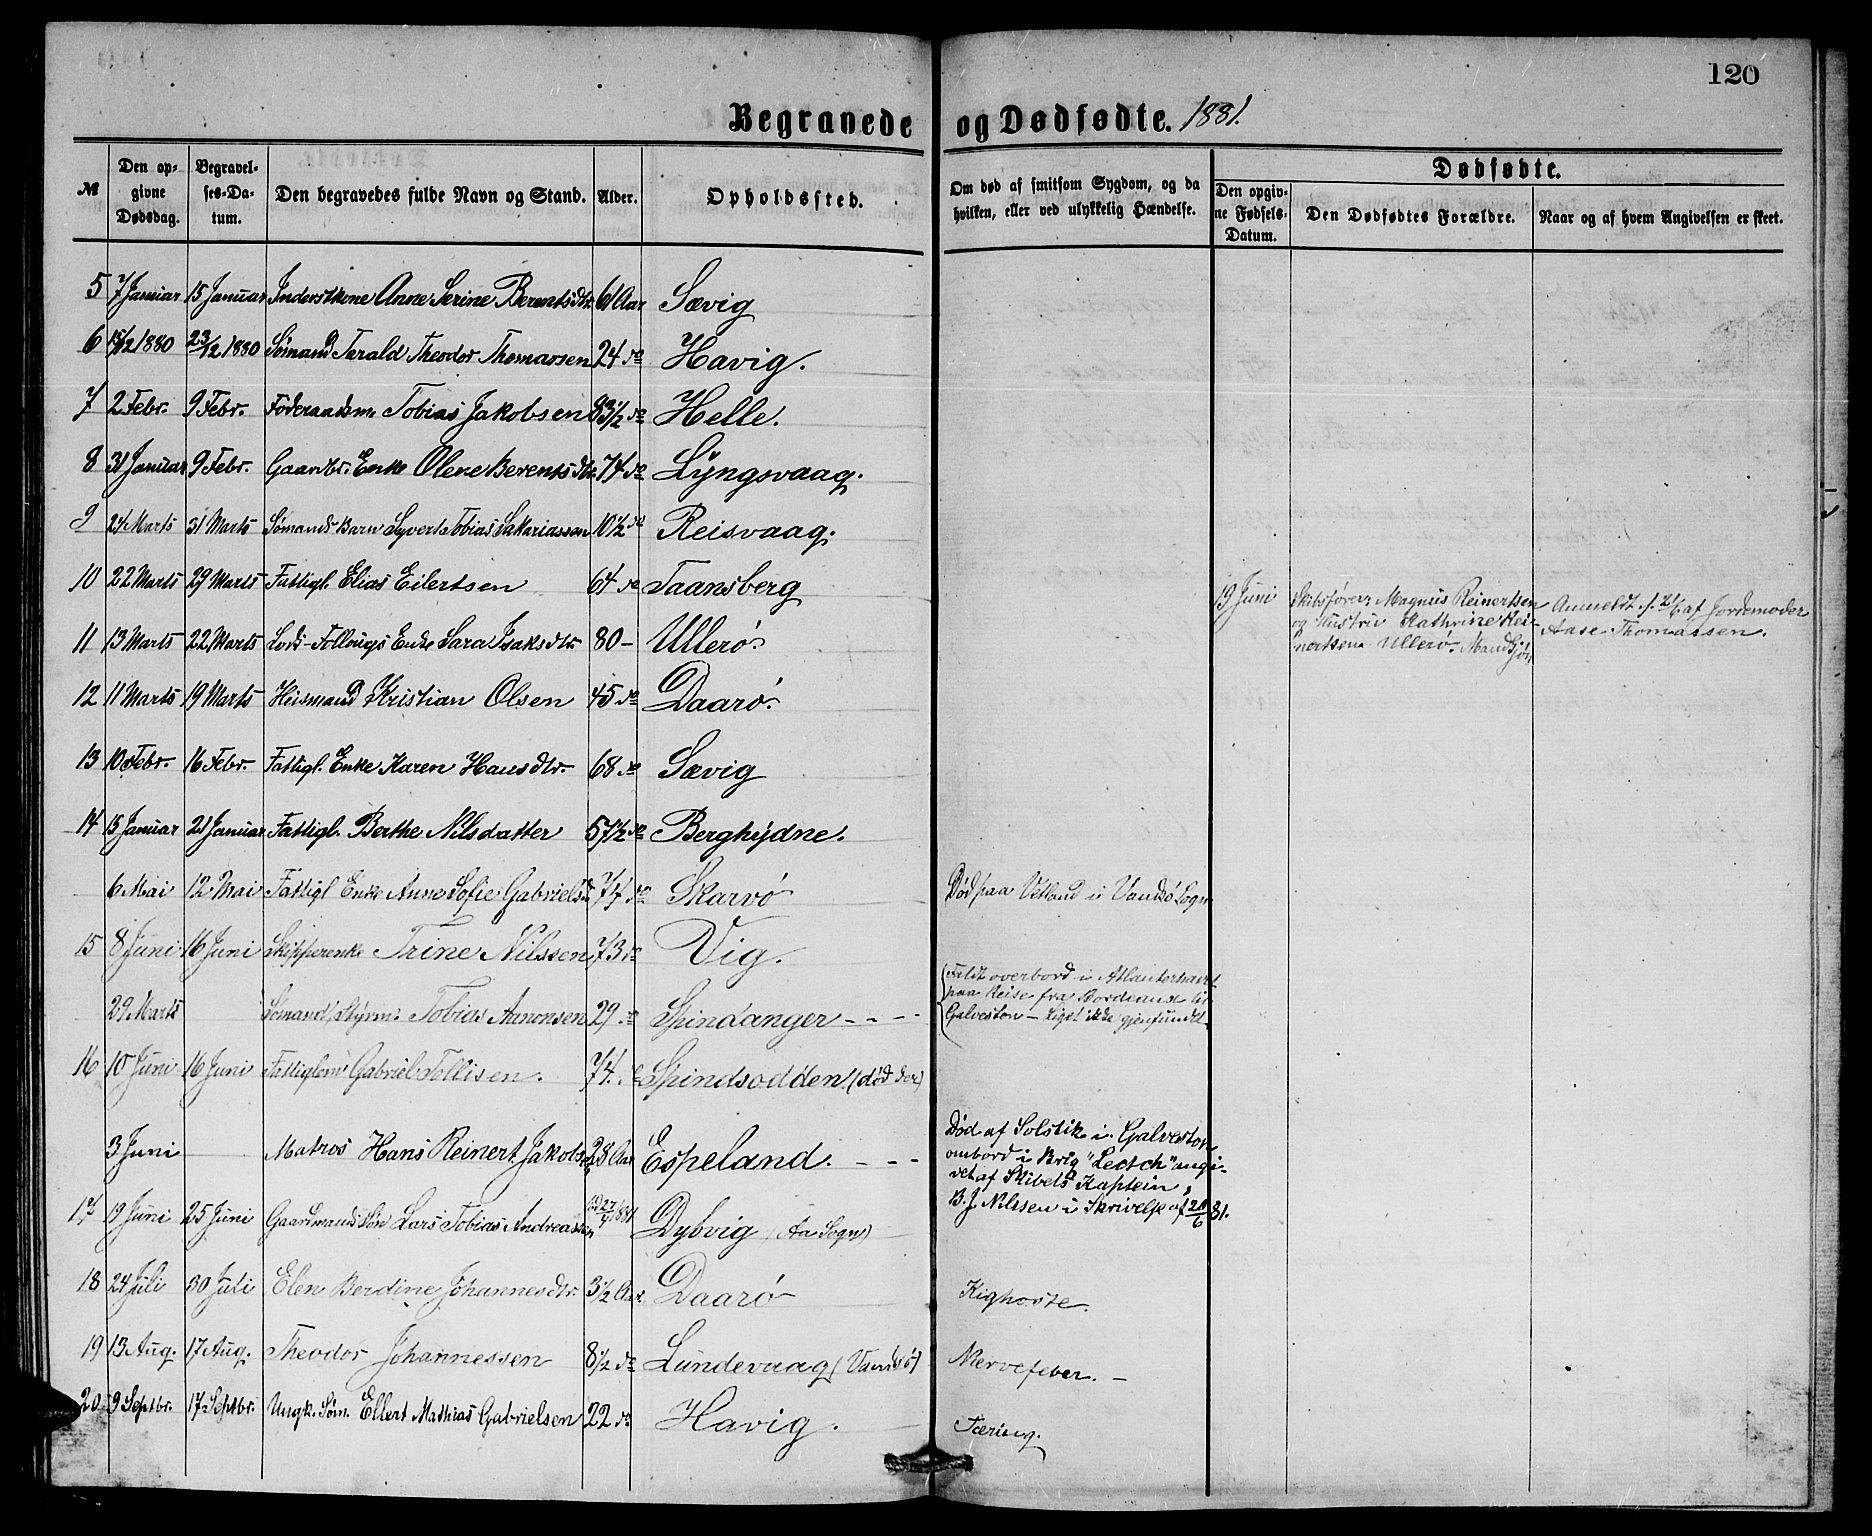 120
Begravede og Dødfødte. 1881.
№ | Den opgivne Dødsdag. | Begravelses-Datum. | Den begravedes fulde Navn og Stand. | Alder. | Opholdssted. | Om død af smitsom Sygdom, og da hvilken, eller ved ulykkelig Hændelse. | Dødfødte. | Den opgivne Fødsels-Datum. | Den Dødfødtes Forældre. | Naar og af hvem Angivelsen er skeet.
5 7 Januar 15 Januar Inderstkone Anne Serine Berentsdtr. 61 Aar Sævig
6 15/12 1880 23/12 1880 Sømand Tarald Theodor Thomassen 24 do Havig.
7 2 Febr. 9 Febr. Føderaadsm. Tobias Jakobsen 83 1/2 do Helle.
8 31 Januar 9 Febr. Gaardbr. Enke Olene Berentsdtr. 74 do Lyngsvaag.
9 24 Marts 31 Marts Sømands Barn Syvert Tobias Sakariassen 10 1/2 do Reisvaag.
10 22 Marts 29 Marts Fattigl. Elias Eilertsen 64 do Taansberg
19 Juni Skibsfører Magnus Reinertsen Anmeldt s. 21/6 af Jordemoder
og Hustru Kathrine Rei- Aase Thomassen.
nertsen Ullerø. Mandkjøn
11 13 Marts 22 Marts Lods-Follougs Enke Sara Isaksdtr. 80 - Ullerø.
12 11 Marts 19 Marts Huusmand Kristian Olsen 45 do Daarø.
13 10 Febr. 16 Febr. Fattigl. Enke Karen Hansdtr. 68 do Sævig
14 15 Januar 21 Januar Fattigl. Berthe Nilsdatter 57 1/2 do Berghydne.
6 Mai 12 Mai Fattigl Enke Anne Sofie Gabrielsd 77 do Skarvø Død paa Vetland i Vandsø Sogn
15 8 Juni 16 Juni Skipperenke Trine Nilssen 73 do Vig.
29 Marts Sømand, Styrm: Tobias Aanonsen 29 do Spindanger - - - -
Faldt overbord i Atlanterhavet
paa Reise fra Bordeaux til
Galveston - Liget ikke gjenfundet.
16 10 Juni 16 Juni Fattiglem Gabriel Tollisen. 74. do Spindsodden (død der)
3 Juni Matros Hans Reinert Jakobsen 28 Aar Espeland. - - -
Død af Solstik i Galveston
ombord i Brig "Lectch" angi-
vet af Skibets Kaptein,
B. J. Nilssen i Skrivelse af 21/6 81.
17 19 Juni 25 Juni Gaardmands Søn Lars Tobias Andreassen fød 27/4 1881 Dybvig (Aa Sogn)
18 24 Juli 30 Juli Elen Berdine Johannesdtr. 3 1/2 Aar. Daarø Kighoste.
19 13 Aug. 17 Aug. Theodor Johannessen 8 1/2 do Lundevaag (Vandsø) Nervefeber. -
20 9 Septbr. 17 Septbr. Ungk. Søm. Ellert Mathias Gabrielsen 22 do Havig. Tæring.